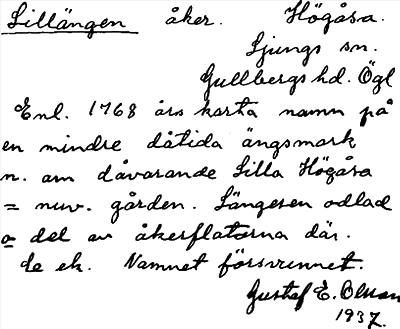 Lillängen åker. Högåsa.
Ljungs sn.
Gullbergs hd. Ögl
Enl. 1768 års karta namn på
en mindre dåtida ängsmark
n. om dåvarande Lilla Högåsa
= nuv. gården. Längesen odlad
o del av åkerflatorna där.
Namnet försvunnet.
Gustaf E. Olsson
1937.